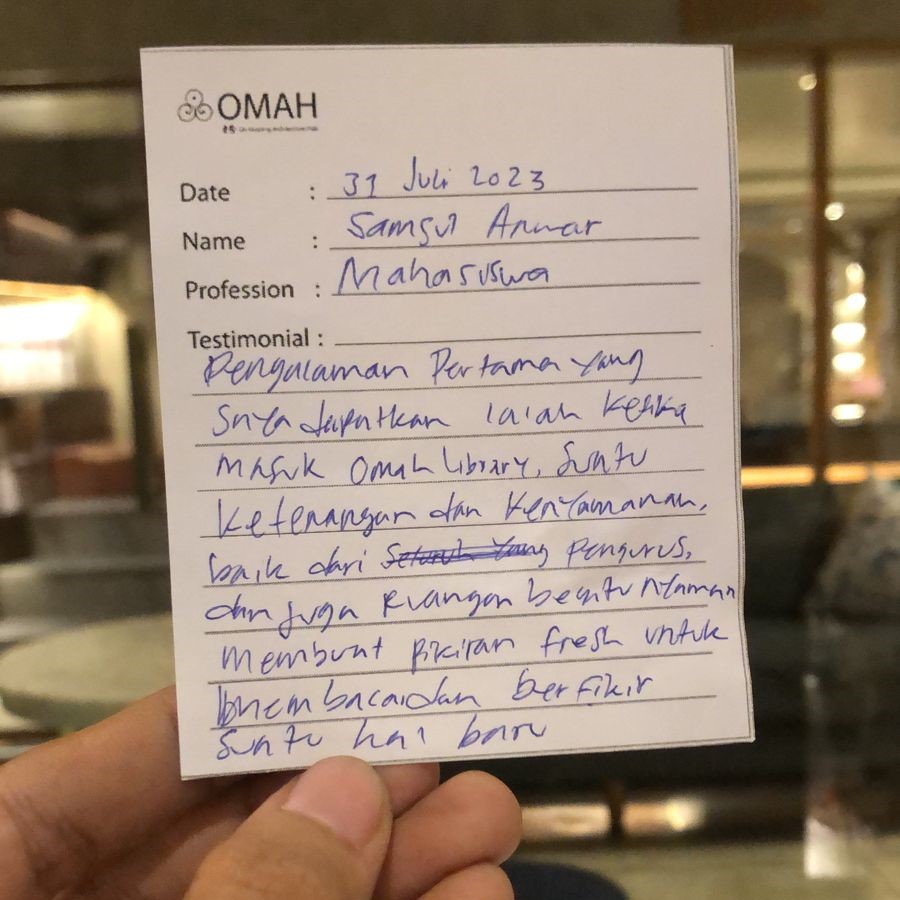 OMAH
Date : 31 Juli 2023
Name : Samsul Anwar
Profession : Mahasiswa
Testimonial :
Pengalaman Pertama yang
Saya dapatkan ialah ketika
masuk Omah Library, Suatu
Ketenangan dan Kenyamanan,
baik dari Seluruh Yang pengurus,
dan juga Ruangan begitu nyaman
membuat pikiran fresh untuk
membaca dan berfikir
Suatu hal baru